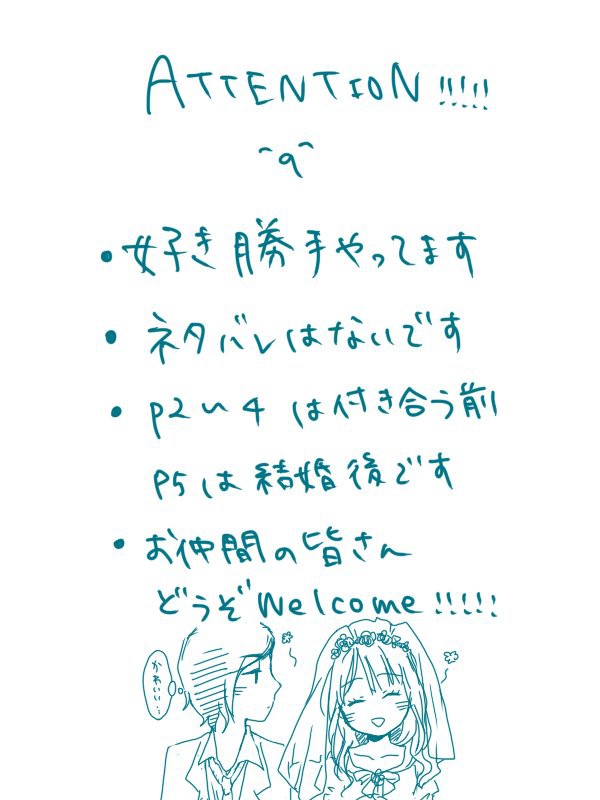 ATTENTION!!!!!
^q^
・好き勝手やってます
・ネタバレはないです
・P2～4は付き合う前
P5は結婚後です
・お仲間の皆さん
どうぞWelcome!!!!!
かわいい…